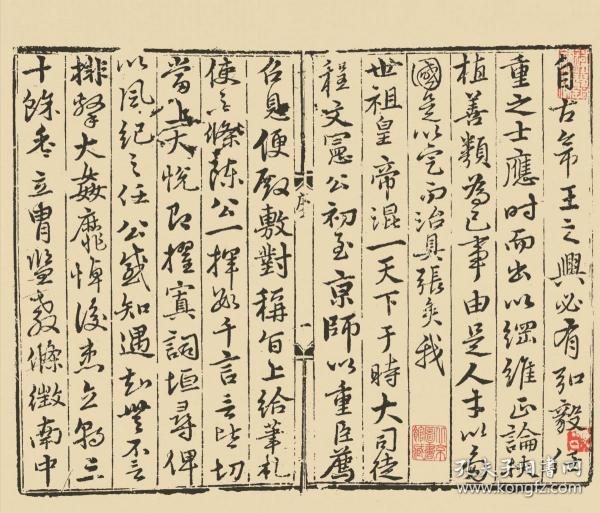 自古帝王之興必有弘毅任
重之士應時而出以綱維正論扶
植善類為己事由是人才以多
國是以定而治具張矣我
世祖皇帝混一天下于時大司徒
程文憲公初至京師以重臣薦
序 一
召見便殿敷對稱旨上給筆札
使之條陳公一揮數千言言皆切
當上大悅即擢寘詞垣尋俾
以風紀之任公感知遇知無不言
排擊大姦靡憚後患立朝三
十餘年立胄監教條徵南中
孔夫子旧书网
www.kongfz.com